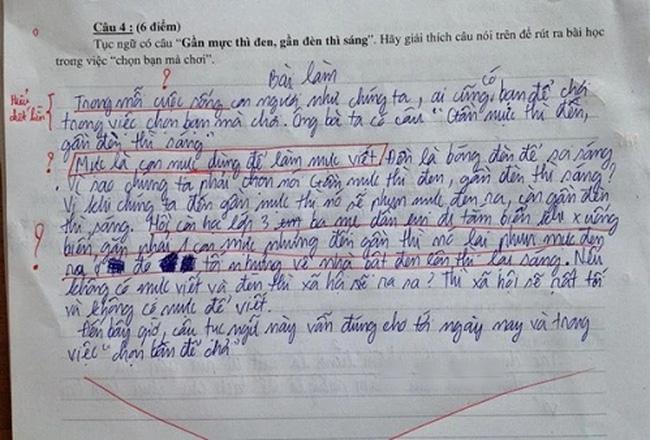 Câu 4 : (6 điểm)
Tục ngữ có câu “Gần mực thì đen, gần đèn thì sáng”. Hãy giải thích câu nói trên để rút ra bài học
trong việc “chọn bạn mà chơi”.
?
Bài làm
Trong mỗi cuộc sống con người như chúng ta, ai cũng có bạn để chơi
trong việc chọn bạn mà chơi. Ông bà ta có câu "Gần mực thì đen,
gần đèn thì sáng"
? Mực là con mực dùng để làm mực viết. Đèn là bóng đèn để ra sáng
. Vì sao chúng ta phải chọn nói Gần mực thì đen, gần đèn thì sáng?
Vì khi chúng ta đến gần mực thì nó sẽ phun mực đen ra, còn gần đèn
thì sáng. Hồi còn học lớp 3 ba mẹ dẫn em đi tắm biển khi xuống
? biển, gần phải 1 con mực nhưng đến gần thì nó lại phun mực đen
ra đó tối nhưng về nhà bật đèn lên thì lại sáng. Nếu
không có mực viết và đèn thì xã hội sẽ ra sao? Thì xã hội sẽ rất tối
và không có mực để viết.
Đến bây giờ, câu tục ngữ này vẫn đúng cho tới ngày nay và trong
việc "chọn bạn để chơi"